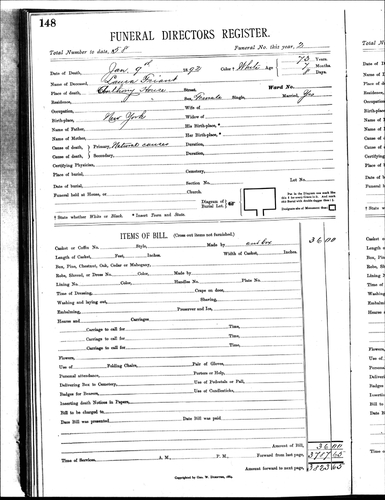 148
FUNERAL DIRECTORS REGISTER.
Total Number to date, 58 Funeral No. this year, 2
Date of Death, Jan 9th 1892 Color † White Age 73 Years.
Name of Deceased, Laura 7 Months.
Place of death, Anthony House Street. Ward No. Days.
Residence, Sex, Female Single, Married, Yes
Occupation, Wife of
Birth-place, New York Widow of
Name of Father, His Birth-place,*
Name of Mother, Her Birth-place,*
Cause of death, Primary, Natural causes Duration,
Cause of death, Secondary, Duration,
Certifying Physician,
Place of burial, Cemetery,
Date of burial, Section No. Lot No.
Funeral held at Home, or Church.
Diagram of Burial Lot,
† State whether White or Black. * Insert Town and State.
ITEMS OF BILL. (Cross out items not furnished.)
Casket or Coffin No. Style, Made by and box 36 00
Length of Casket, Feet, Inches. Width of Casket, Inches.
Box, Pine, Chestnut, Oak, Cedar or Mahogany,
Robe, Shroud, or Dress No. Color, Made by
Lining No. Color, Handles No. Plate No.
Time of Dressing, Crape on door,
Washing and laying out, Shaving,
Embalming, Preserver and Ice,
Hearse and Carriages
Carriage to call for Time,
Carriage to call for Time,
Carriage to call for Time,
Carriage to call for Time,
Flowers,
Use of Folding Chairs, Pair of Gloves,
Personal attendance, Porters or Help,
Delivering Box to Cemetery, Use of Pedestals or Pall,
Badges for Bearers, Use of Candlesticks,
Inserting death Notices in Papers,
Bill to be charged to
Date Bill was presented Date Bill was paid
Amount of Bill, 36 00
Time of Services, A. M., P. M., Forward from last page, 3787 65
Amount forward to next page, 3823 65